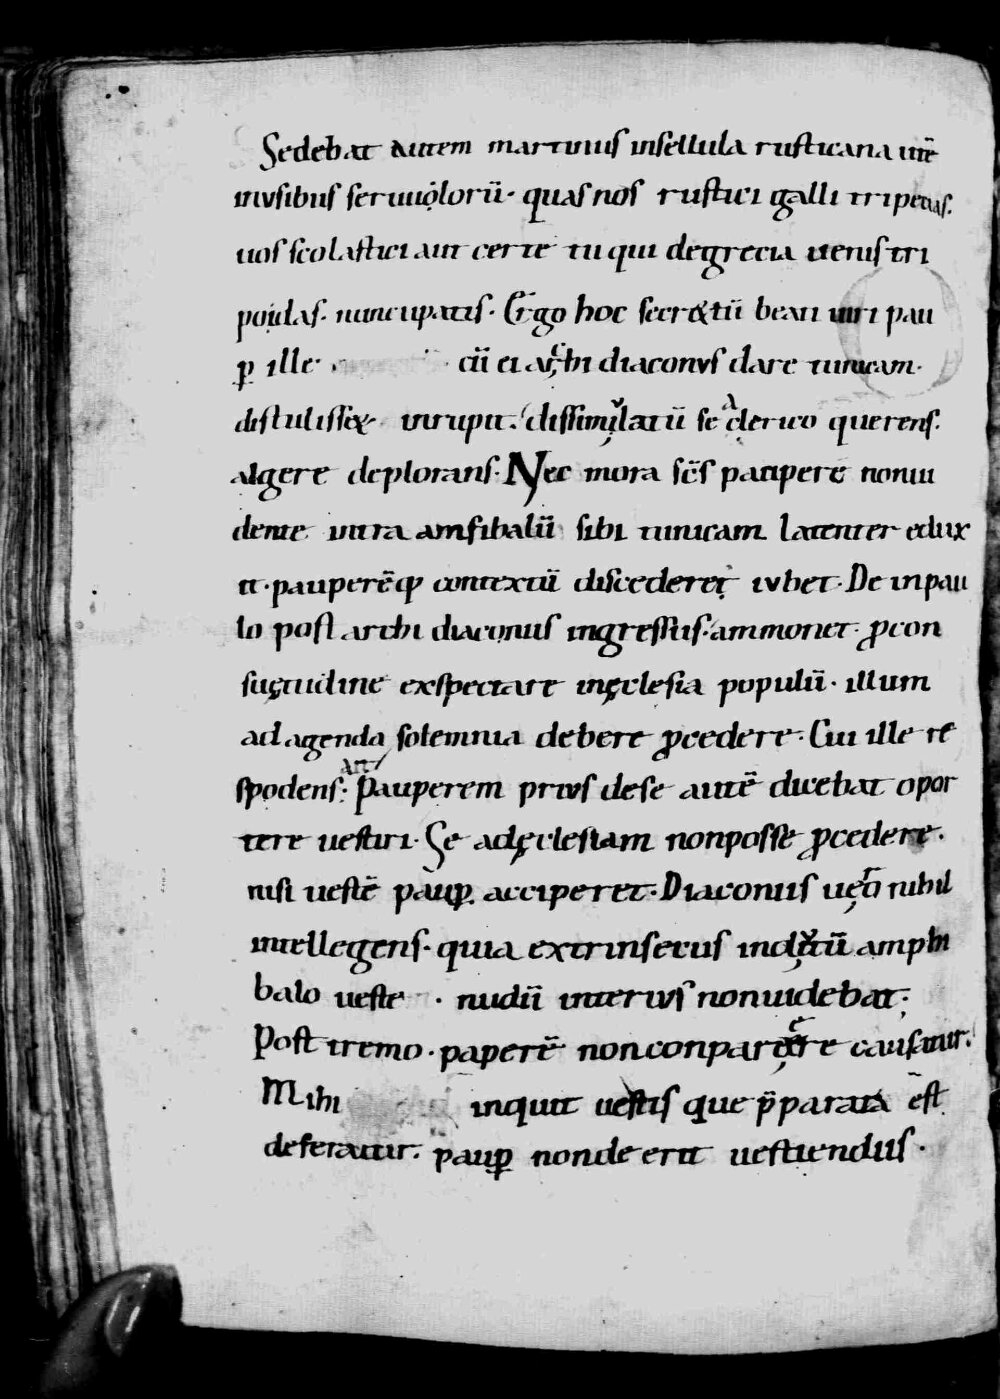 Sedebat autem martinus insellula rusticana utē
inusibus seruuolorū. quas nos rustici galli tripetias.
uos scolastici aut certe tu qui degrecia uenis tri
podas. nuncupatis. Ergo hoc secr&tū beati uiri pau
ꝑ ille. cū ei archi diaconus dare tunicam.
distuliss&. inrupit. dissimulatū se a clerico querens.
algere deplorans. Nec mora sc̄s paupere nonui
dente intra amfibalū sibi tunicam latenter edux
it. pauperēq; contextū discederet iubet. De inpau
lo post archi diaconus ingressus. ammonet ꝓcon
suętudine exspectare inęclesia populū. illum
ad agenda solemnia debere ꝓcedere. Cui ille re
spodens: ait Pauperem prius dese autē dicebat opor
tere uestiri. Se adęclesiam nonposse ꝓcedere.
nisi uestē pauꝑ acciperet. Diaconus uęro nihil
intellegens. quia extrinsecus indutū amphi
balo ueste. nudū interius nonuidebat;
Post tremo. paperē nonconparere causatur.
Mihi inquit uestis que p̄parata ēst
deferatur. pauꝑ nonde erit uestiendus.